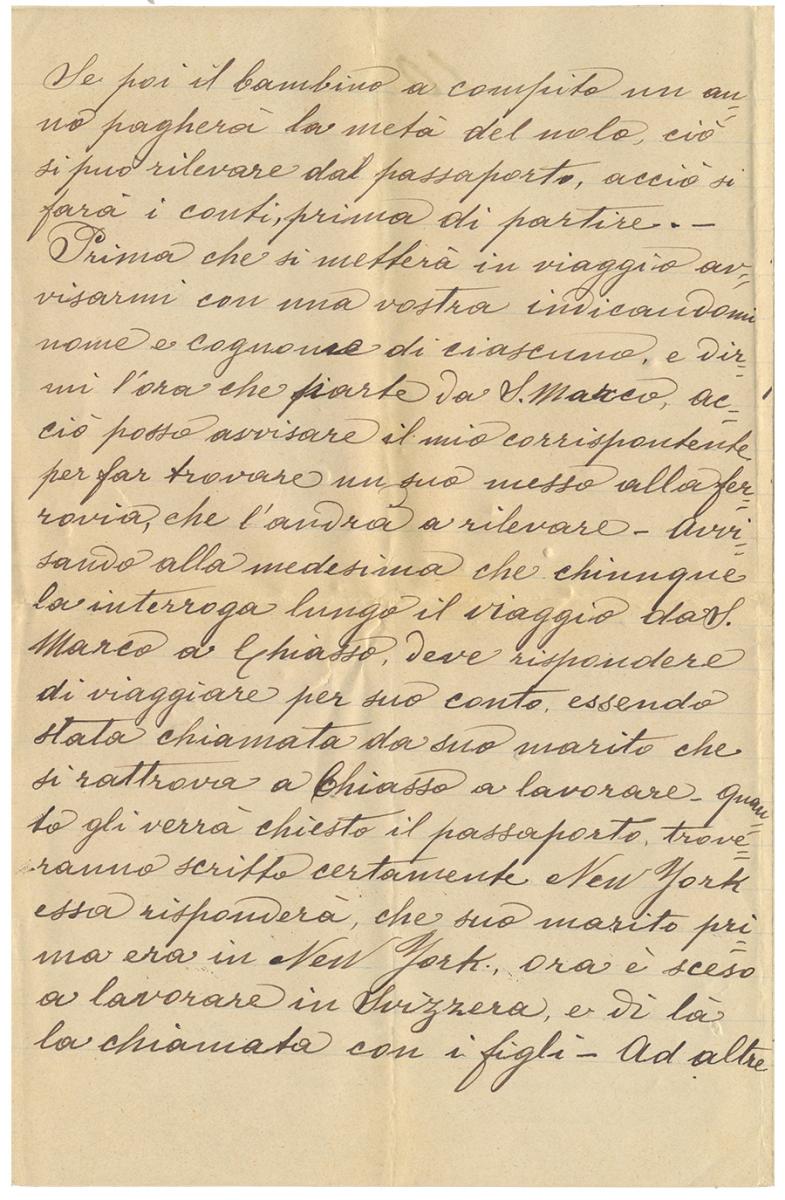 Se poi il bambino a compito un an=
no pagherà la metà del nolo, ciò
si può rilevare dal passaporto, acciò si
farà i conti, prima di partire. –
Prima che si metterà in viaggio av=
visarmi con una vostra indicandomi
nome e cognome di ciascuno, e dir=
mi l'ora che parte da S. Marco, ac=
ciò posso avvisare il mio corrispontente
per far trovare un suo messo alla fer=
rovia, che l'andrà a rilevare – Avvi=
sando alla medesima che chiunque
la interroga lungo il viaggio da S.
Marco a Chiasso, deve rispondere
di viaggiare per suo conto, essendo
stata chiamata da suo marito che
si rattrova a Chiasso a lavorare – Quan=
to gli verrà chiesto il passaporto, trove=
ranno scritto certamente New York
essa risponderà, che suo marito pri=
ma era in New York., ora è sceso
a lavorare in Svizzera, e di là
la chiamata con i figli – Ad altre